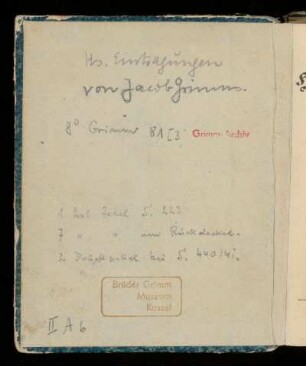 Hs. Eintragungen
von Jacob Grimm.
8° Grimm 81 [3
Grimm-Archiv
1 hs. Zettel S. 223
7 " " am Rückdeckel.
2 Druckzettel bei S. 440/41.
Brüder Grimm
Museum
Kassel
II A 6